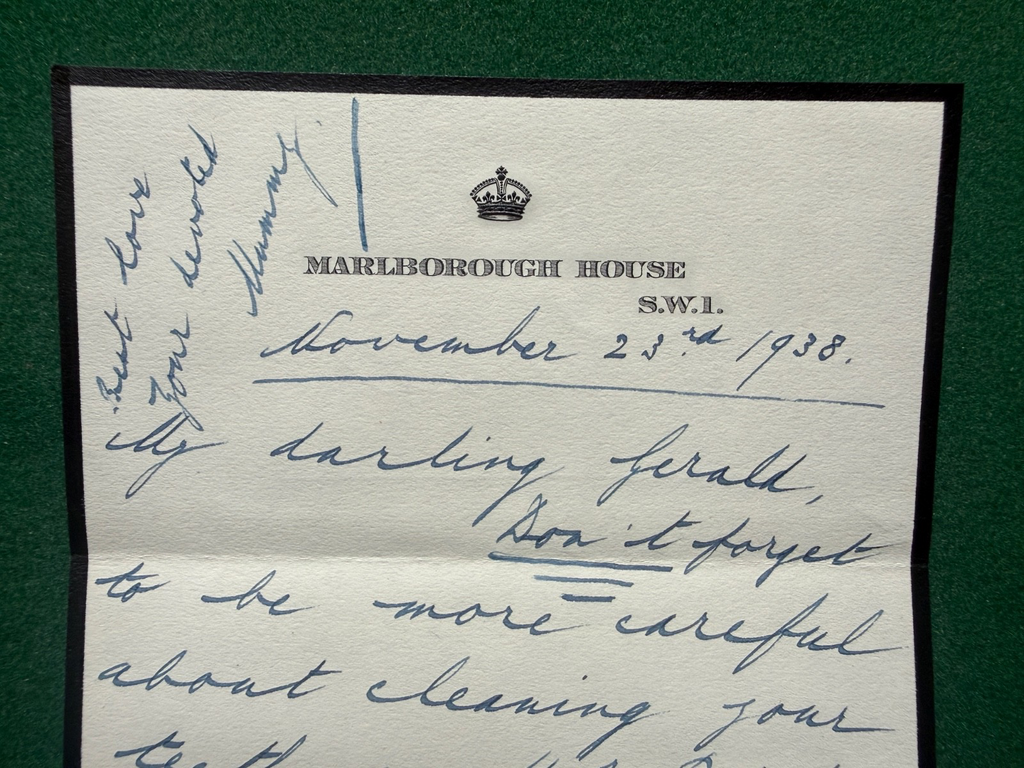 Best love
Your devoted
Mummy.
MARLBOROUGH HOUSE
S.W.1.
November 23rd 1938.
My darling Gerald,
Don't forget
to be more careful
about cleaning your